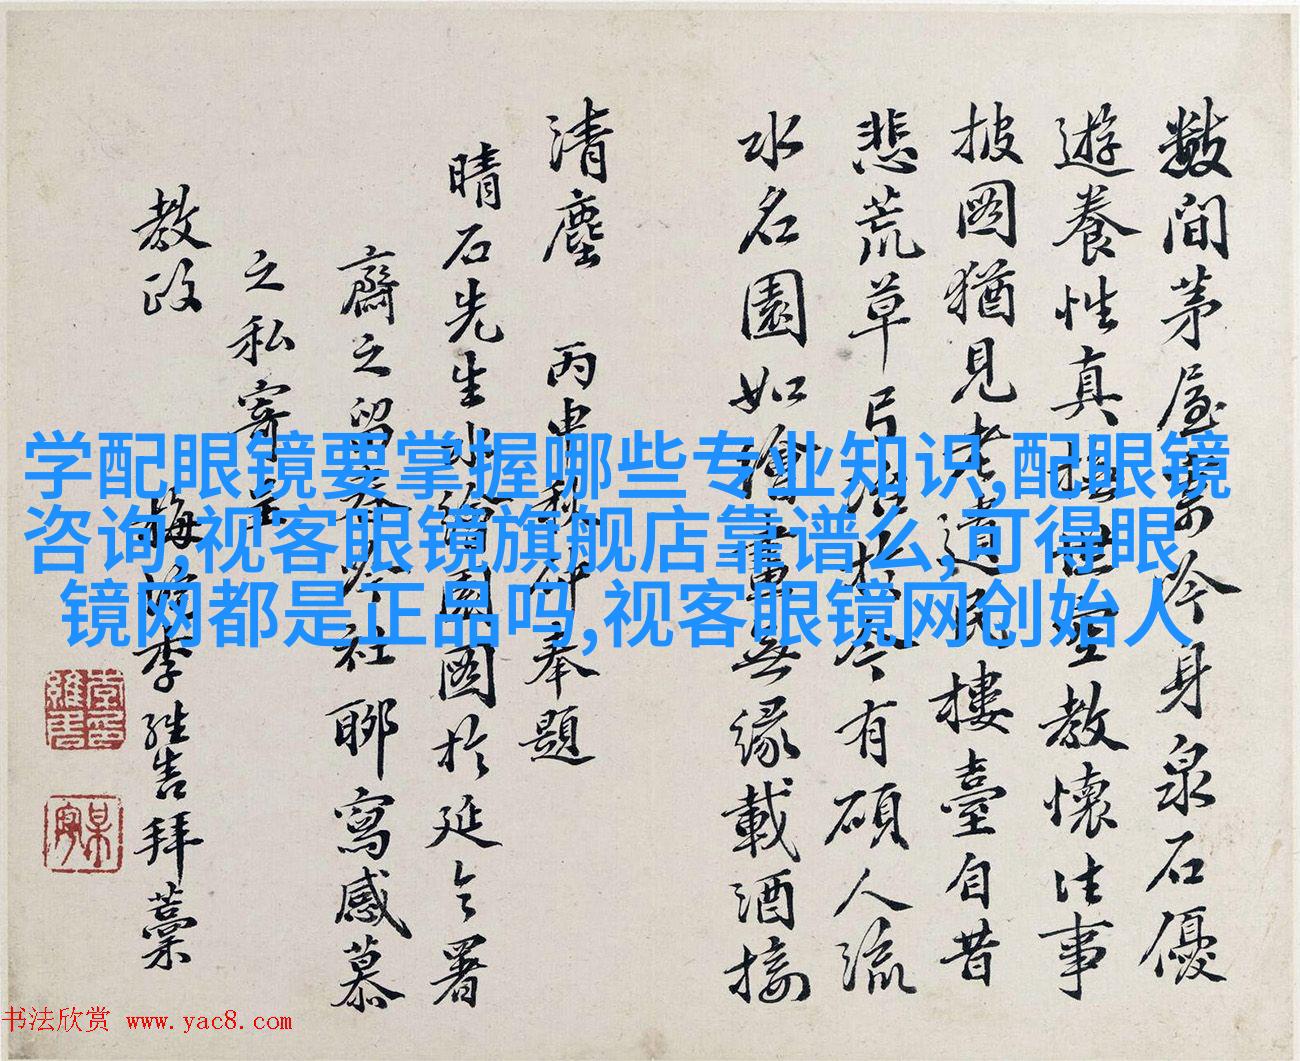 數間茅屋寄吟身泉石優
遊養性真 世 教懷往事
披圖猶見老遺民樓臺自昔
悲荒草 今有碩人流
水名園如繪畫無緣載酒接
清塵 丙申秋仲奉題
晴石先生 繪園圖於延令署
齋之 社聊寫感慕
之私寄呈
教政
梅 李維 拜藁
学配眼镜要掌握哪些专业知识,配眼镜
咨询,视客眼镜旗舰店靠谱么,可得眼
镜网都是正品吗,视客眼镜网创始人
书法欣赏 www.yac8.com